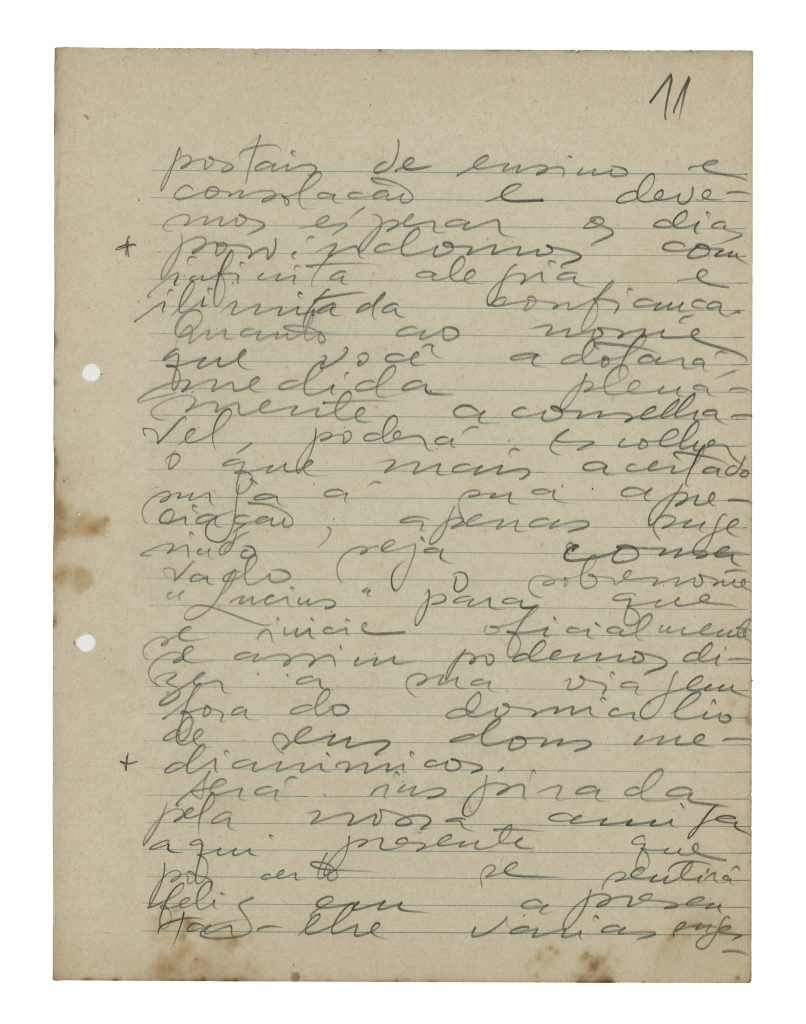 11
postais de ensino e
consolação e deve-
mos esperar os dias
+ porvindouros com
infinita alegria e
ilimitada confiança.
Quanto ao nome
que você adotará,
medida plena-
mente aconselha-
vel, poderá escolher
o que mais acertado
surja á sua apre-
ciação, apenas suge
rindo seja conser
vado o sobrenome
"Lucius" para que
se inicie oficialmente
se assim podemos di-
zer a sua viagem
fora do domicilio
de seus dons me-
+ dianimicos.
Será inspirada
pela nossa amiga
aqui presente que
por certo se sentirá
feliz em apresen
tar-lhe varias suges-